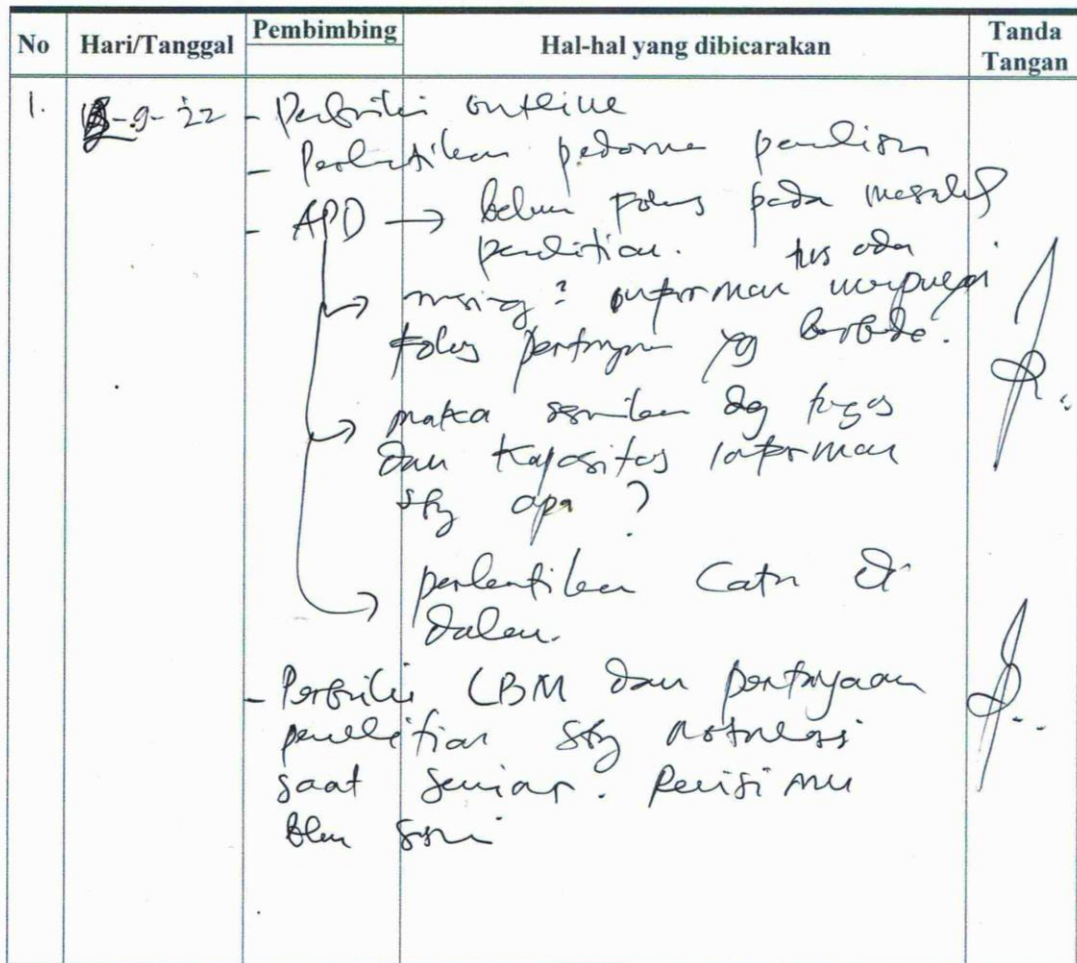 No Hari/Tanggal Pembimbing Hal-hal yang dibicarakan Tanda Tangan
1. -9-22 - Perbaiki outline
- Perhatikan pedoman penulisan
- APD → belum fokus pada masalah
penelitian. hrs ada
→ masing2 informan mempunyai
fokus pertanyaan yg berbeda.
→ maka sesuaikan dg tugas
dan kapasitas informan
sbg apa ?
→ perhatikan Catn di
dalam.
- Perbaiki LBM dan pertanyaan
penelitian
saat seminar. Revisimu
blm